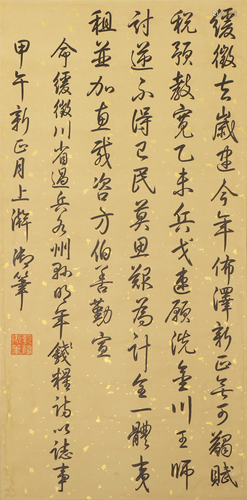 緩徵去歲逮今年佈澤新正無可蠲賦
稅預教寬乙未兵戈速願洗金川王師
討逆不得已民莫思艱為計全一體夷
租並加直我咨方伯善勤宣
命緩徵川省過兵各州縣明年錢糧詩以誌事
甲午新正月上澣御筆